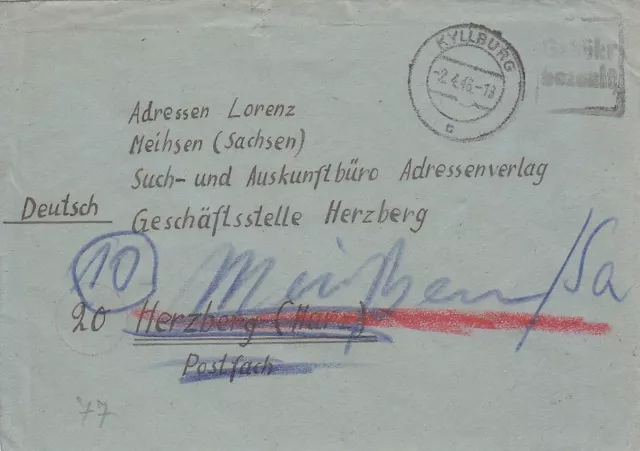 KYLLBURG
-2.4.46.-18
c
Gebühr
bezahlt
Adressen Lorenz
Meihsen (Sachsen)
Such- und Auskunftbüro Adressenverlag
Deutsch
Geschäftsstelle Herzberg
10
Meißen/Sa
20 Herzberg (Harz)
Postfach
77